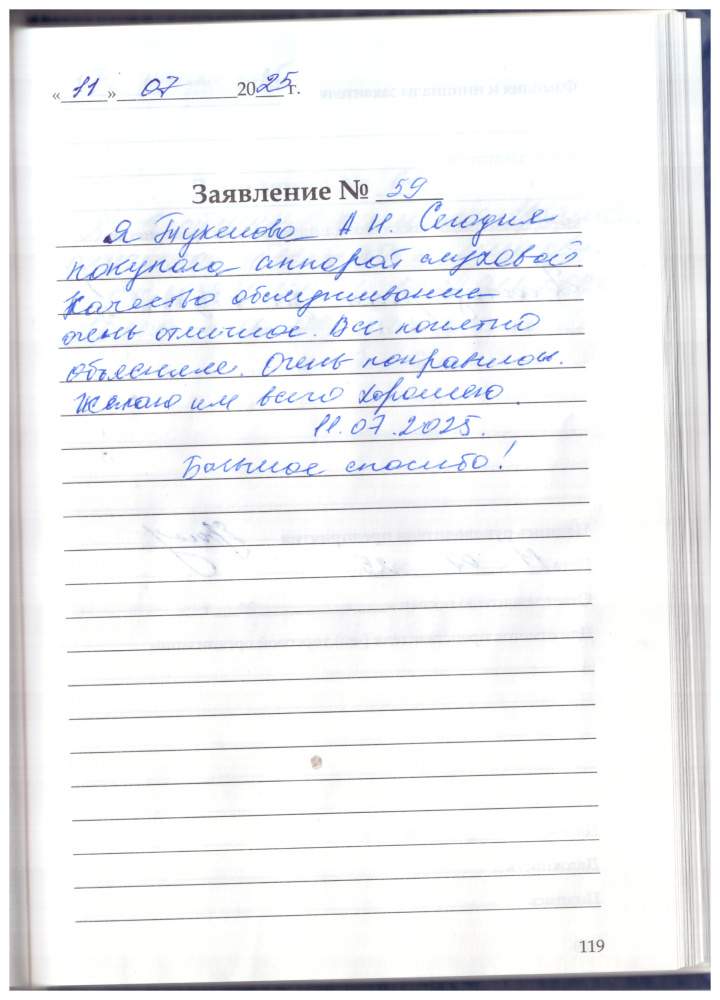 «11» 07 2025 г.
Заявление № 59
Я А Н. Сегодня
покупала аппарат слуховой
Качество обслуживание
очень отличное. Все понятно
объяснили. Очень понравилось.
Желаю им всего хорошего.
11.07.2025.
Большое спасибо!
119